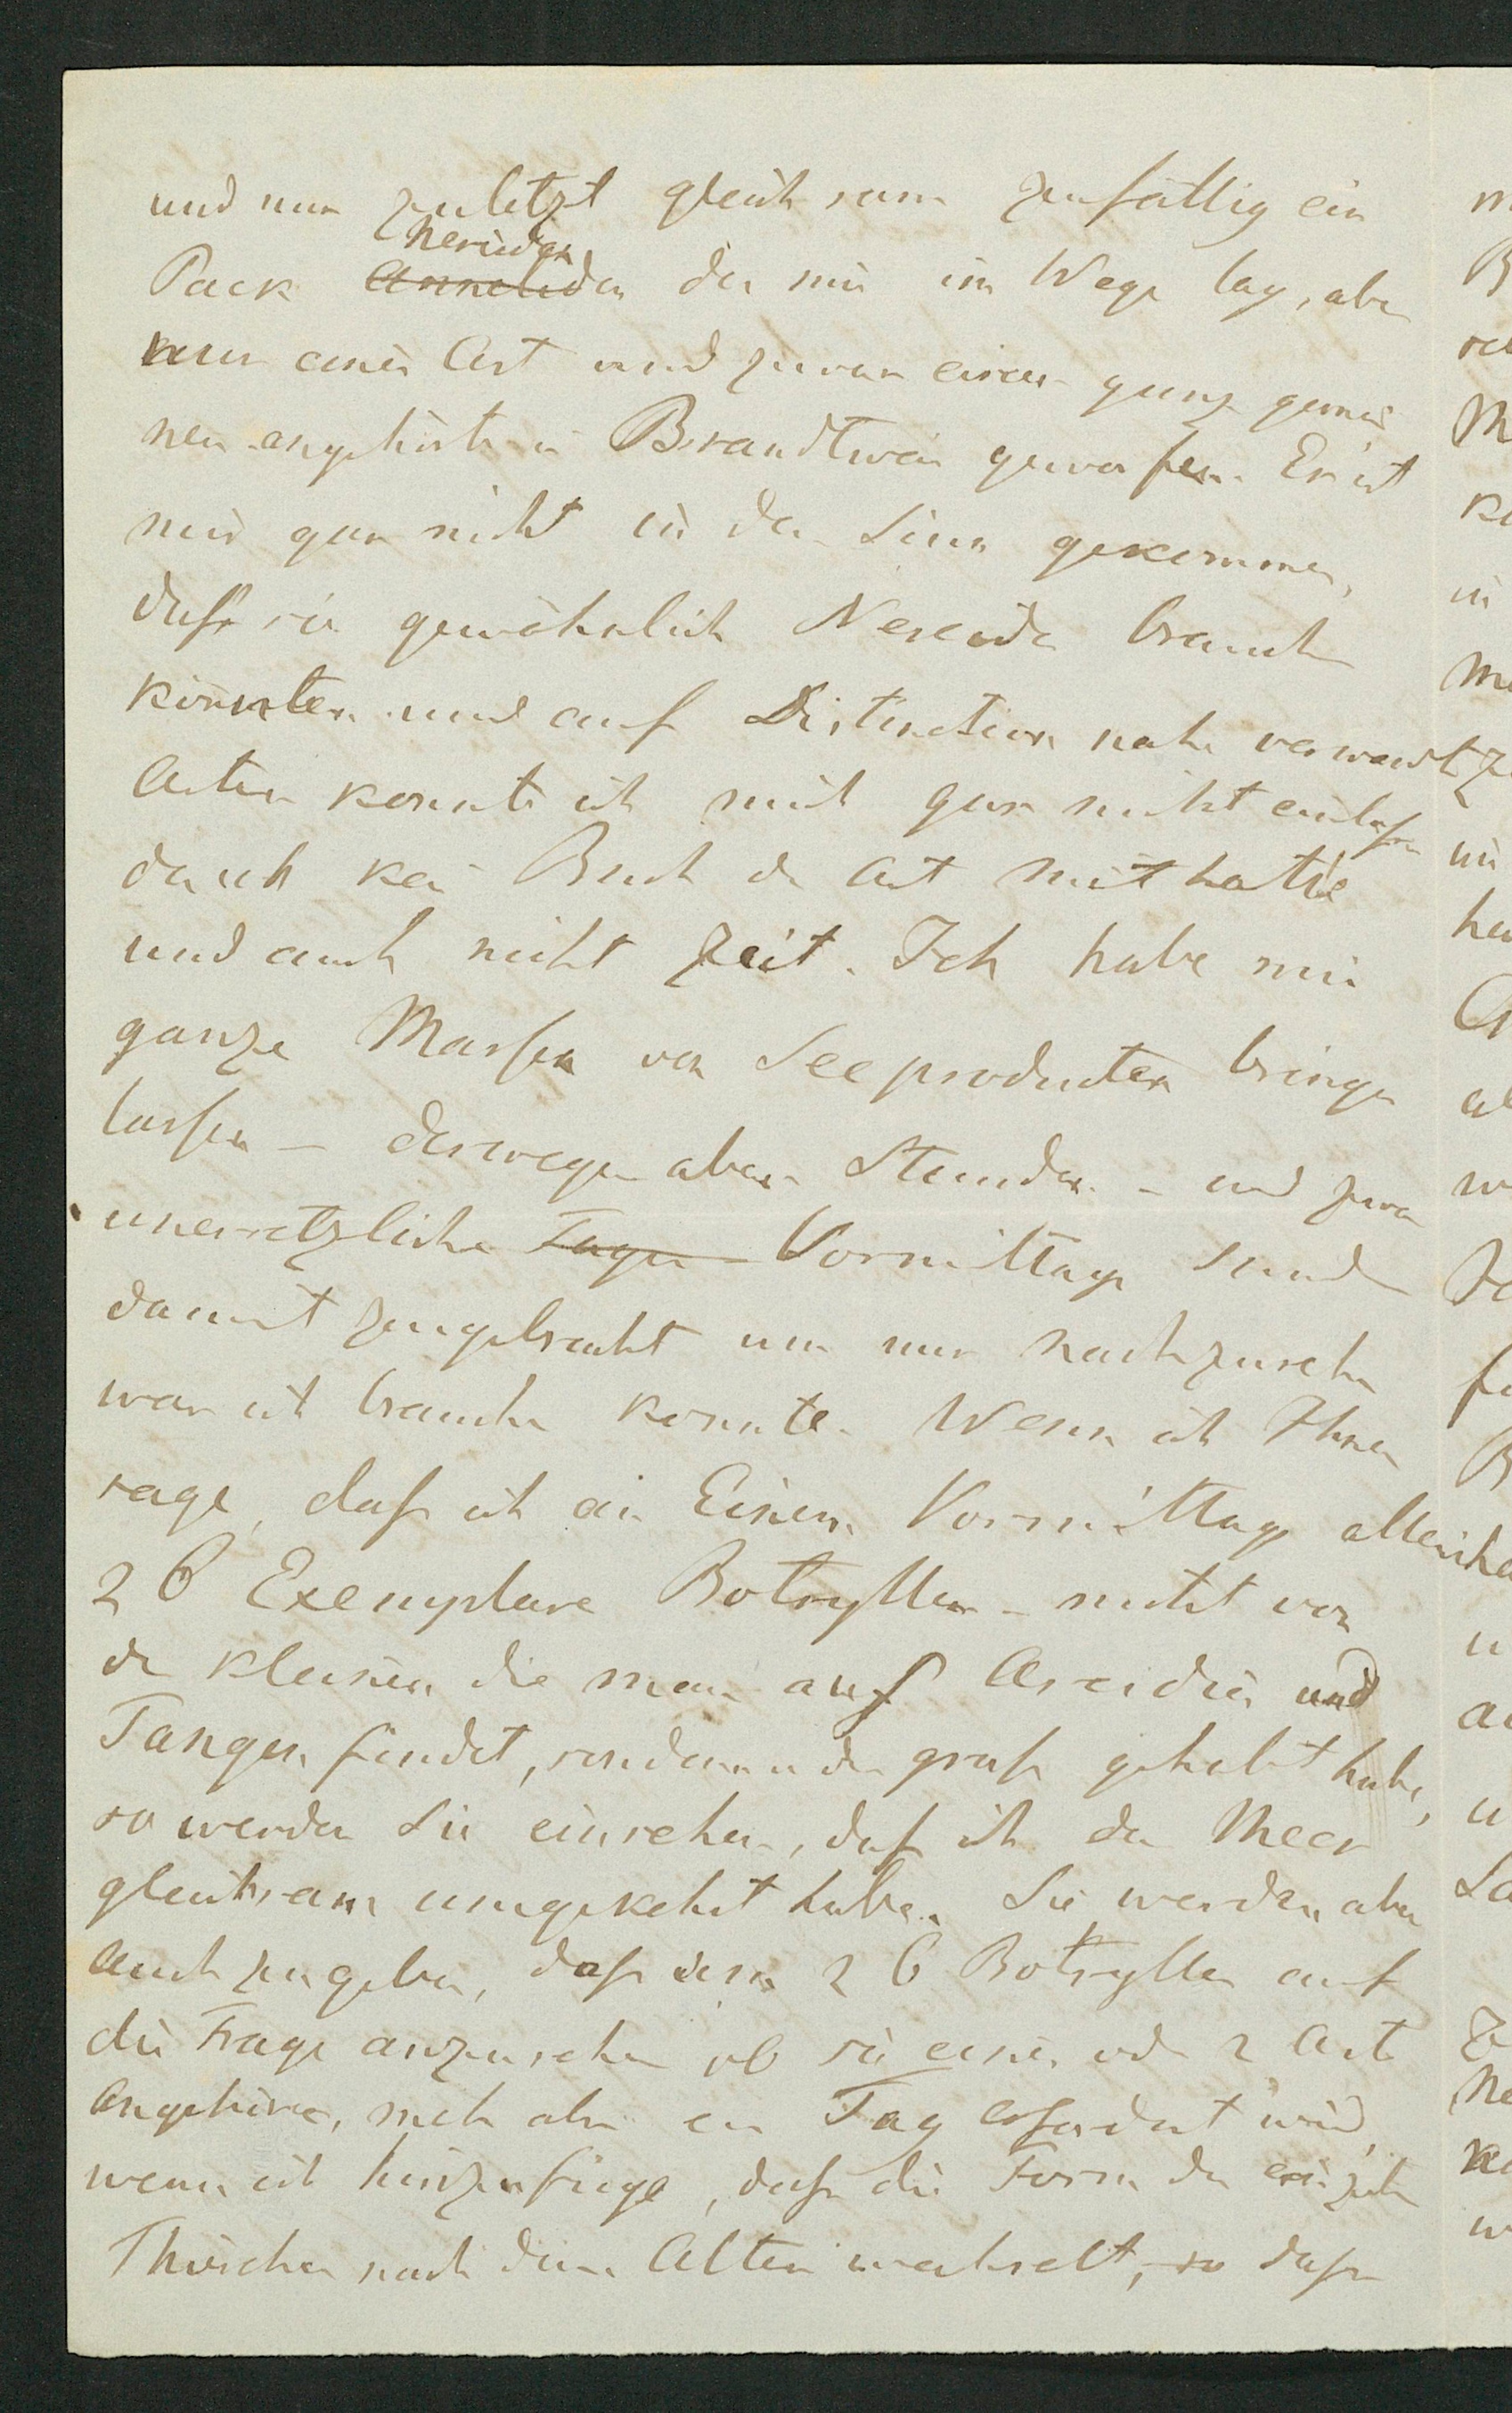 und nun zuletzt gleichsam zufällig ein
Nereiden
Pack Anneliden der mir im Wege lag, aber
nur einer Art und zwar einer ganz gemei
nen angehörte in Brandtwein geworfen. Es ist
mir gar nicht in den Sinn gekommen,
daß sie gewöhnlich Nereiden brauchen
könnten und auf Distinction nahe verwandter
Arten konnte ich mich gar nicht einlassen
da ich kein Buch der Art mit hatte
und auch nicht Zeit. Ich habe mir
ganze Massen von Seeproducten bringen
lassen – deswegen aber Stunden – und zwar
unersetzliche Tage Vormittags Stunden
damit zugebracht um nur nachzusehen
was ich brauchen konnte. Wenn ich Ihnen
sage, daß ich an Einem Vormittage allein
26 Exemplare Botryllen – nicht von
den kleinen die man auf Ascidien und
Tangen findet, sondern von den großen gehabt habe,
so werden Sie einsehen, daß ich das Meer
gleichsam umgekehrt habe. Sie werden aber
auch zugeben, daß diese 26 Botryllen auf
die Frage anzusehen ob sie einer oder 2 Arten
angehören, mehr als ein Tag erfordert wird,
wenn ich hinzufüge, daß die Form der einzelnen
Thierchen nach dem Alter wechselt, so daß